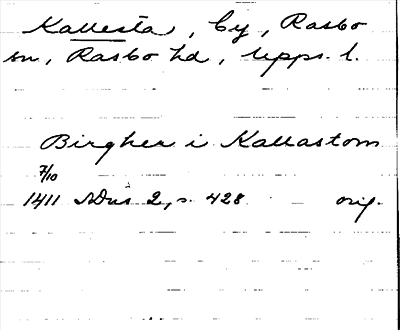 Kallesta, by, Rasbo
sn, Rasbo hd, Upps. l.
Birgher i Kallastom
7/10
1411 SDns 2, s. 428 orig.